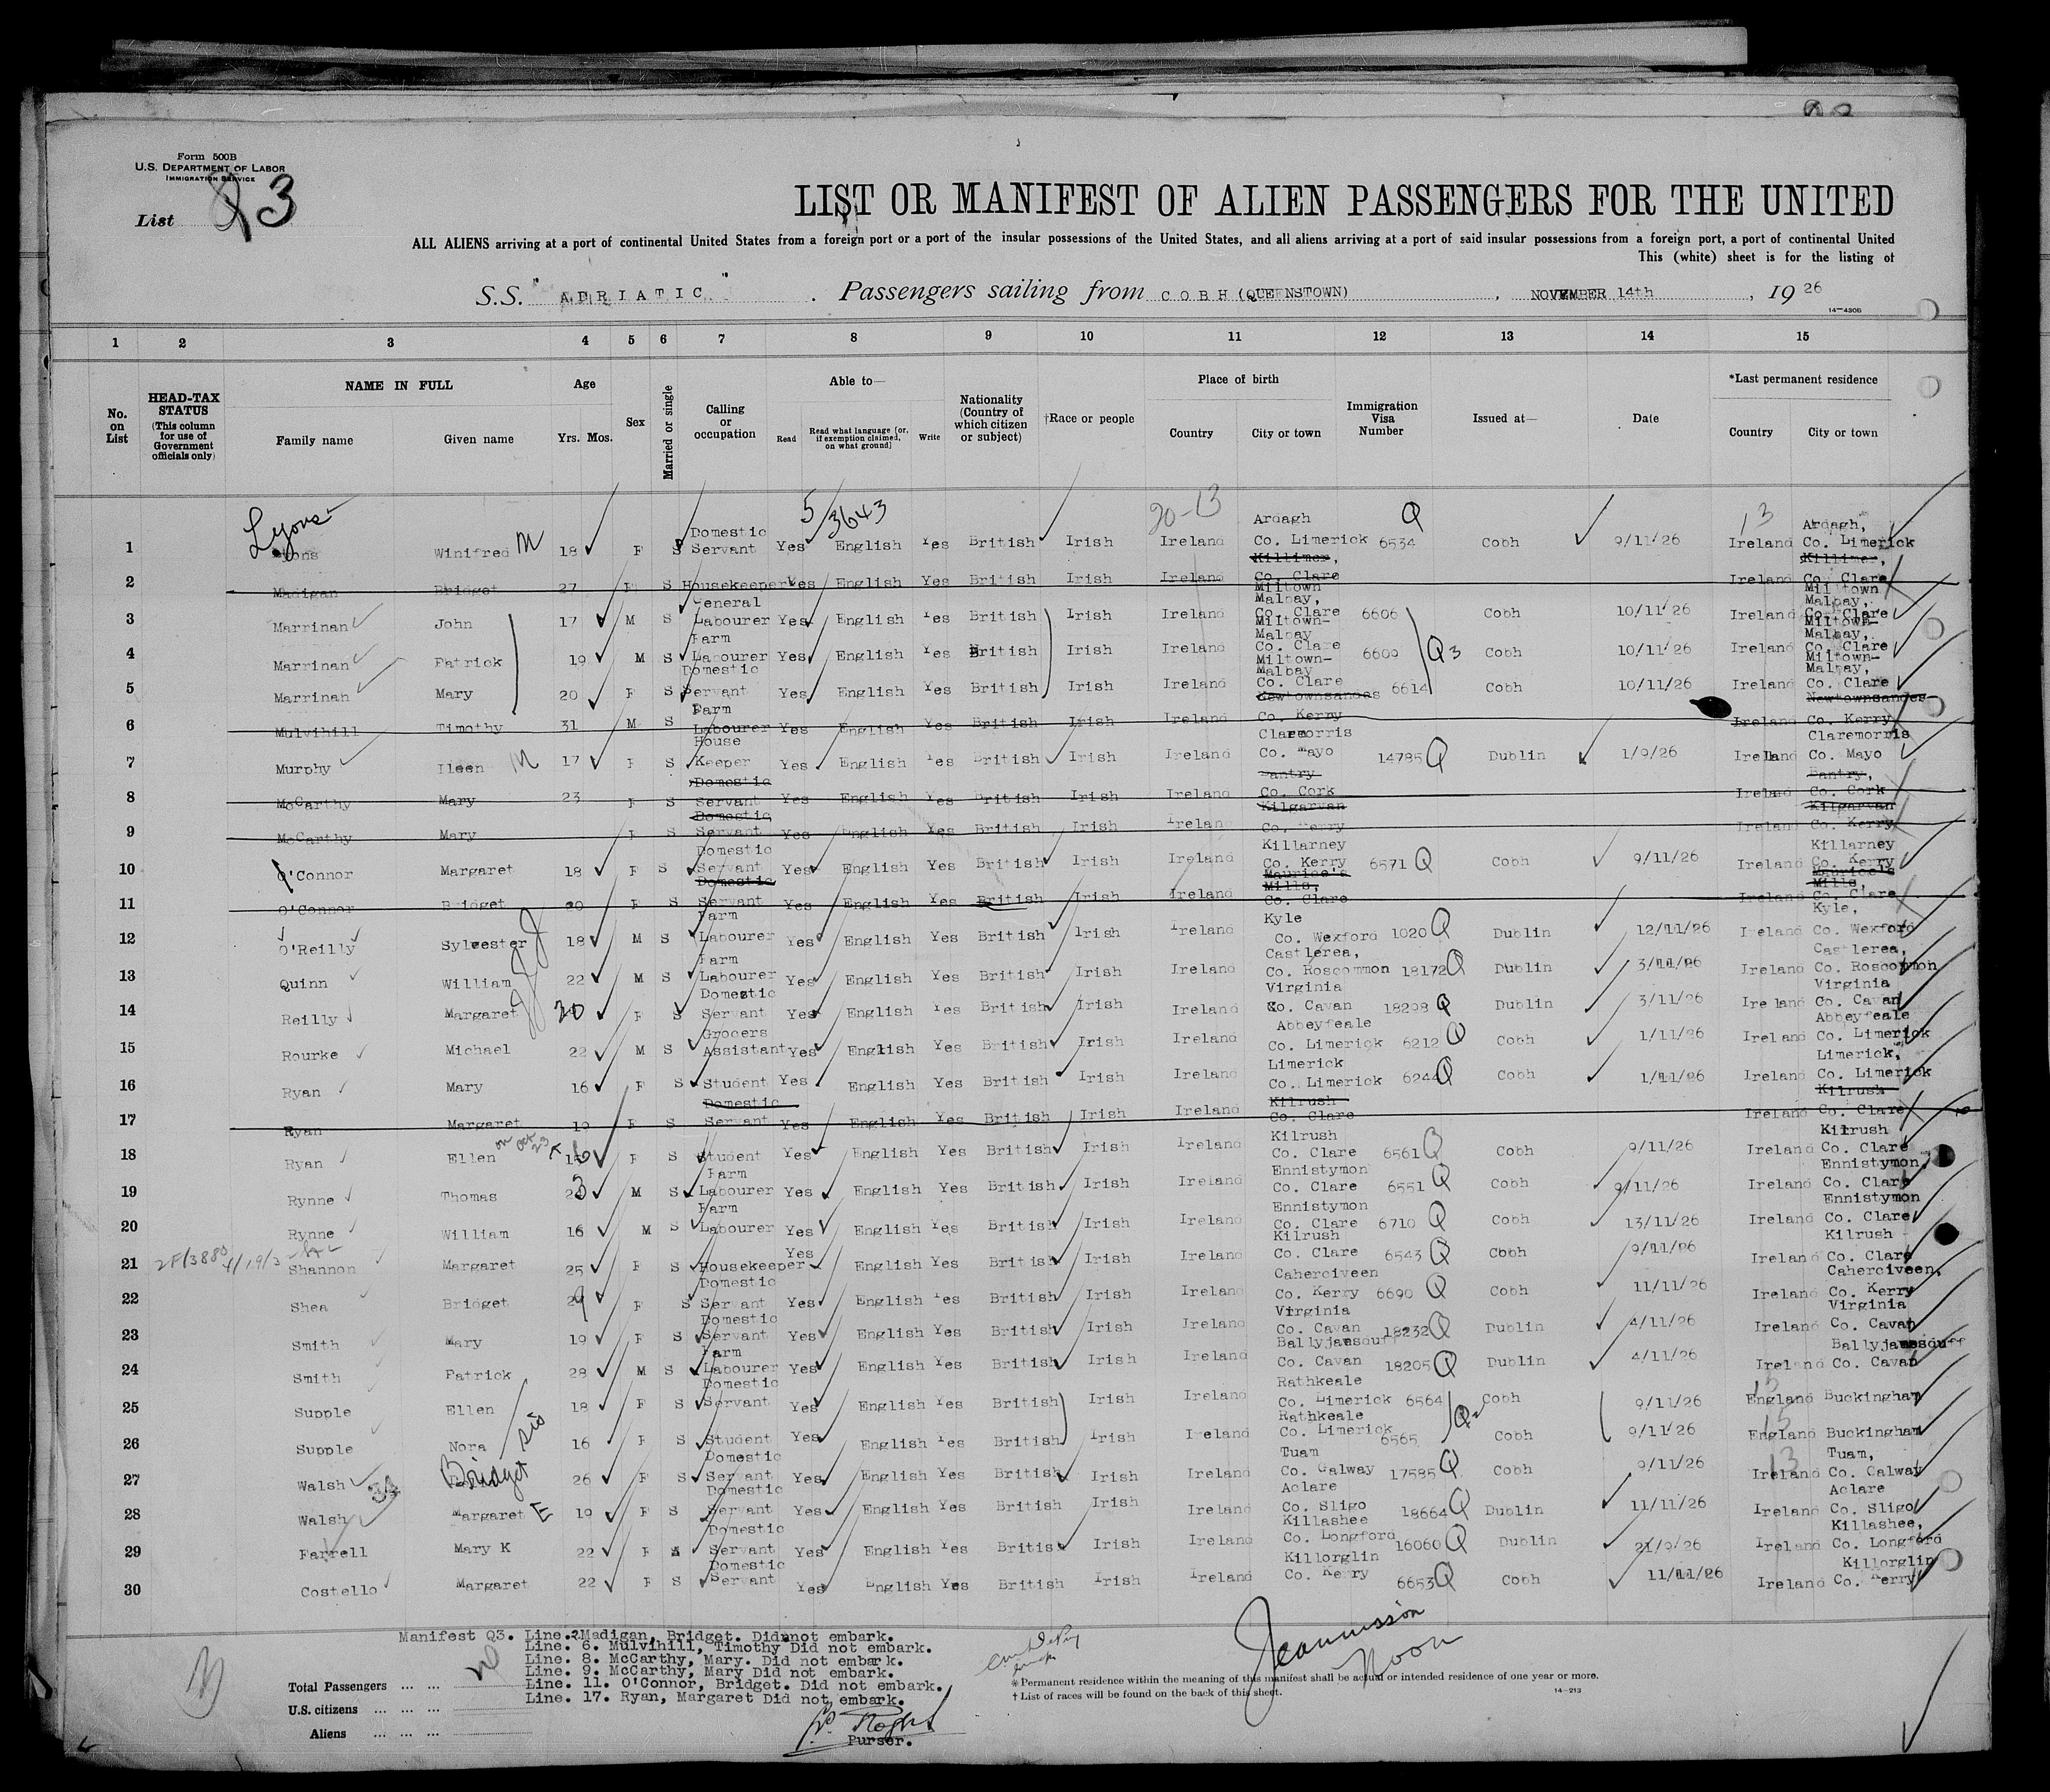 Form 500B
U.S. DEPARTMENT OF LABOR
IMMIGRATION SERVICE
List Q3
LIST OR MANIFEST OF ALIEN PASSENGERS FOR THE UNITED
ALL ALIENS arriving at a port of continental United States from a foreign port or a port of the insular possessions of the United States, and all aliens arriving at a port of said insular possessions from a foreign port, a port of continental United
This (white) sheet is for the listing of
S.S. "ADRIATIC". Passengers sailing from COBH (QUEENSTOWN), NOVEMBER 14th, 1926
14—430B
1 2 3 4 5 6 7 8 9 10 11 12 13 14 15
No. on List
HEAD-TAX STATUS (This column for use of Government officials only)
NAME IN FULL Family name Given name
Age Yrs. Mos.
Sex
Married or single
Calling or occupation
Able to— Read Read what language [or, if exemption claimed, on what ground] Write
Nationality (Country of which citizen or subject)
†Race or people
Place of birth Country City or town
Immigration Visa Number
Issued at—
Date
*Last permanent residence Country City or town
5/3643 20-13 Q 13
1 Lyons Winifred M 18 F S Domestic Servant Yes English Yes British Irish Ireland Ardagh Co. Limerick 6534 Cobh 9/11/26 Ireland Ardagh, Co. Limerick
2 Madigan Bridget 27 F S Housekeeper Yes English Yes British Irish Ireland Killimer, Co. Clare Ireland Killimer, Co. Clare
3 Marrinan John 17 M S General Labourer Yes English Yes British Irish Ireland Miltown Malbay, Co. Clare 6606 Cobh 10/11/26 Ireland Miltown Malbay, Co. Clare
4 Marrinan Patrick 19 M S Farm Labourer Yes English Yes British Irish Ireland Miltown-Malbay Co. Clare 6609 Q3 Cobh 10/11/26 Ireland Miltown-Malbay, Co. Clare
5 Marrinan Mary 20 F S Domestic Servant Yes English Yes British Irish Ireland Miltown-Malbay Co. Clare 6614 Cobh 10/11/26 Ireland Miltown-Malbay, Co. Clare
6 Mulvihill Timothy 31 M S Farm Labourer Yes English Yes British Irish Ireland Newtownsandes Co. Kerry Ireland Newtownsandes Co. Kerry
7 Murphy Ileen M 17 F S House Keeper Yes English Yes British Irish Ireland Claremorris Co. Mayo 14785 Q Dublin 1/9/26 Ireland Claremorris Co. Mayo
8 McCarthy Mary 23 F S Domestic Servant Yes English Yes British Irish Ireland Bantry Co. Cork Ireland Bantry, Co. Cork
9 McCarthy Mary F S Domestic Servant Yes English Yes British Irish Ireland Kilgarvan Co. Kerry Ireland Kilgarvan Co. Kerry
10 O'Connor Margaret 18 F S Domestic Servant Yes English Yes British Irish Ireland Killarney Co. Kerry 6571 Q Cobh 9/11/26 Ireland Killarney Co. Kerry
11 O'Connor Bridget 20 F S Domestic Servant Yes English Yes British Irish Ireland Maurice's Mills, Co. Clare Ireland Maurice's Mills, Co. Clare
12 O'Reilly Sylvester 18 M S Farm Labourer Yes English Yes British Irish Ireland Kyle Co. Wexford 1020 Q Dublin 12/11/26 Ireland Kyle, Co. Wexford
13 Quinn William 22 M S Farm Labourer Yes English Yes British Irish Ireland Castlerea, Co. Roscommon 18172 Q Dublin 3/11/26 Ireland Castlerea, Co. Roscommon
14 Reilly Margaret 20 F S Domestic Servant Yes English Yes British Irish Ireland Virginia Co. Cavan 18298 Q Dublin 3/11/26 Ireland Virginia Co. Cavan
15 Rourke Michael 22 M S Grocers Assistant Yes English Yes British Irish Ireland Abbeyfeale Co. Limerick 6212 Q Cobh 1/11/26 Ireland Abbeyfeale Co. Limerick
16 Ryan Mary 16 F S Student Yes English Yes British Irish Ireland Limerick Co. Limerick 6244 Q Cobh 1/11/26 Ireland Limerick, Co. Limerick
17 Ryan Margaret 19 F S Domestic Servant Yes English Yes British Irish Ireland Kilrush Co. Clare Ireland Kilrush Co. Clare
18 Ryan Ellen on Oct 23 16 F S Student Yes English Yes British Irish Ireland Kilrush Co. Clare 6561 Q Cobh 9/11/26 Ireland Kilrush Co. Clare
19 Rynne Thomas 23 M S Farm Labourer Yes English Yes British Irish Ireland Ennistymon Co. Clare 6551 Q Cobh 9/11/26 Ireland Ennistymon, Co. Clare
20 Rynne William 16 M S Farm Labourer Yes English Yes British Irish Ireland Ennistymon Co. Clare 6710 Q Cobh 13/11/26 Ireland Ennistymon Co. Clare
21 Shannon Margaret 25 F S Housekeeper Yes English Yes British Irish Ireland Kilrush Co. Clare 6543 Q Cobh 9/11/26 Ireland Kilrush Co. Clare
22 Shea Bridget 29 F S Domestic Servant Yes English Yes British Irish Ireland Caherciveen Co. Kerry 6690 Q Cobh 11/11/26 Ireland Caherciveen, Co. Kerry
23 Smith Mary 19 F S Domestic Servant Yes English Yes British Irish Ireland Virginia Co. Cavan 18232 Q Dublin 4/11/26 Ireland Virginia Co. Cavan
24 Smith Patrick 28 M S Farm Labourer Yes English Yes British Irish Ireland Ballyjamesduff Co. Cavan 18205 Q Dublin 4/11/26 Ireland Ballyjamesduff Co. Cavan
25 Supple Ellen 18 F S Domestic Servant Yes English Yes British Irish Ireland Rathkeale Co. Limerick 6564 Cobh 9/11/26 England Buckingham
26 Supple Nora sis 16 F S Student Yes English Yes British Irish Ireland Rathkeale Co. Limerick 6565 Cobh 9/11/26 England Buckingham
27 Walsh Bridget 26 F S Domestic Servant Yes English Yes British Irish Ireland Tuam Co. Galway 17585 Q Cobh 9/11/26 Ireland Tuam, Co. Galway
28 Walsh Margaret E 19 F S Domestic Servant Yes English Yes British Irish Ireland Aclare Co. Sligo 18664 Q Dublin 11/11/26 Ireland Aclare Co. Sligo
29 Farrell Mary K 22 F S Domestic Servant Yes English Yes British Irish Ireland Killashee Co. Longford 16060 Q Dublin 21/9/26 Ireland Killashee, Co. Longford
30 Costello Margaret 22 F S Domestic Servant Yes English Yes British Irish Ireland Killorglin Co. Kerry 6653 Q Cobh 11/11/26 Ireland Killorglin Co. Kerry
Manifest Q3. Line.2 Madigan, Bridget. Did not embark.
Line. 6. Mulvihill, Timothy Did not embark.
Line. 8. McCarthy, Mary. Did not embark.
Line. 9. McCarthy, Mary Did not embark.
Line. 11. O'Connor, Bridget. Did not embark.
Line. 17. Ryan, Margaret Did not embark.
Purser.
Total Passengers ... ...
U.S. citizens ... ... ...
Aliens ... ... ...
* Permanent residence within the meaning of this manifest shall be actual or intended residence of one year or more.
† List of races will be found on the back of this sheet.
14—213